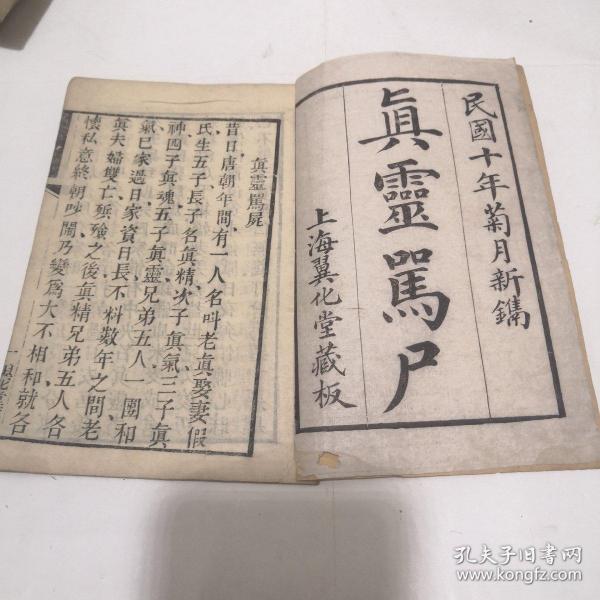 民國十年菊月新鐫
眞靈罵尸
上海翼化堂藏板
眞靈罵屍
昔日唐朝年間有一人名呌老眞娶妻假
氏生五子長子名眞精次子眞氣三子眞
神四子眞魂五子眞靈兄弟五人一團和
氣已家過日家資日長不料數年之間老
眞夫婦雙亡殯殮之後眞精兄弟五人各
懷私意終朝吵鬧乃變爲大不相和就各
一
孔夫子旧书网
www.kongfz.com